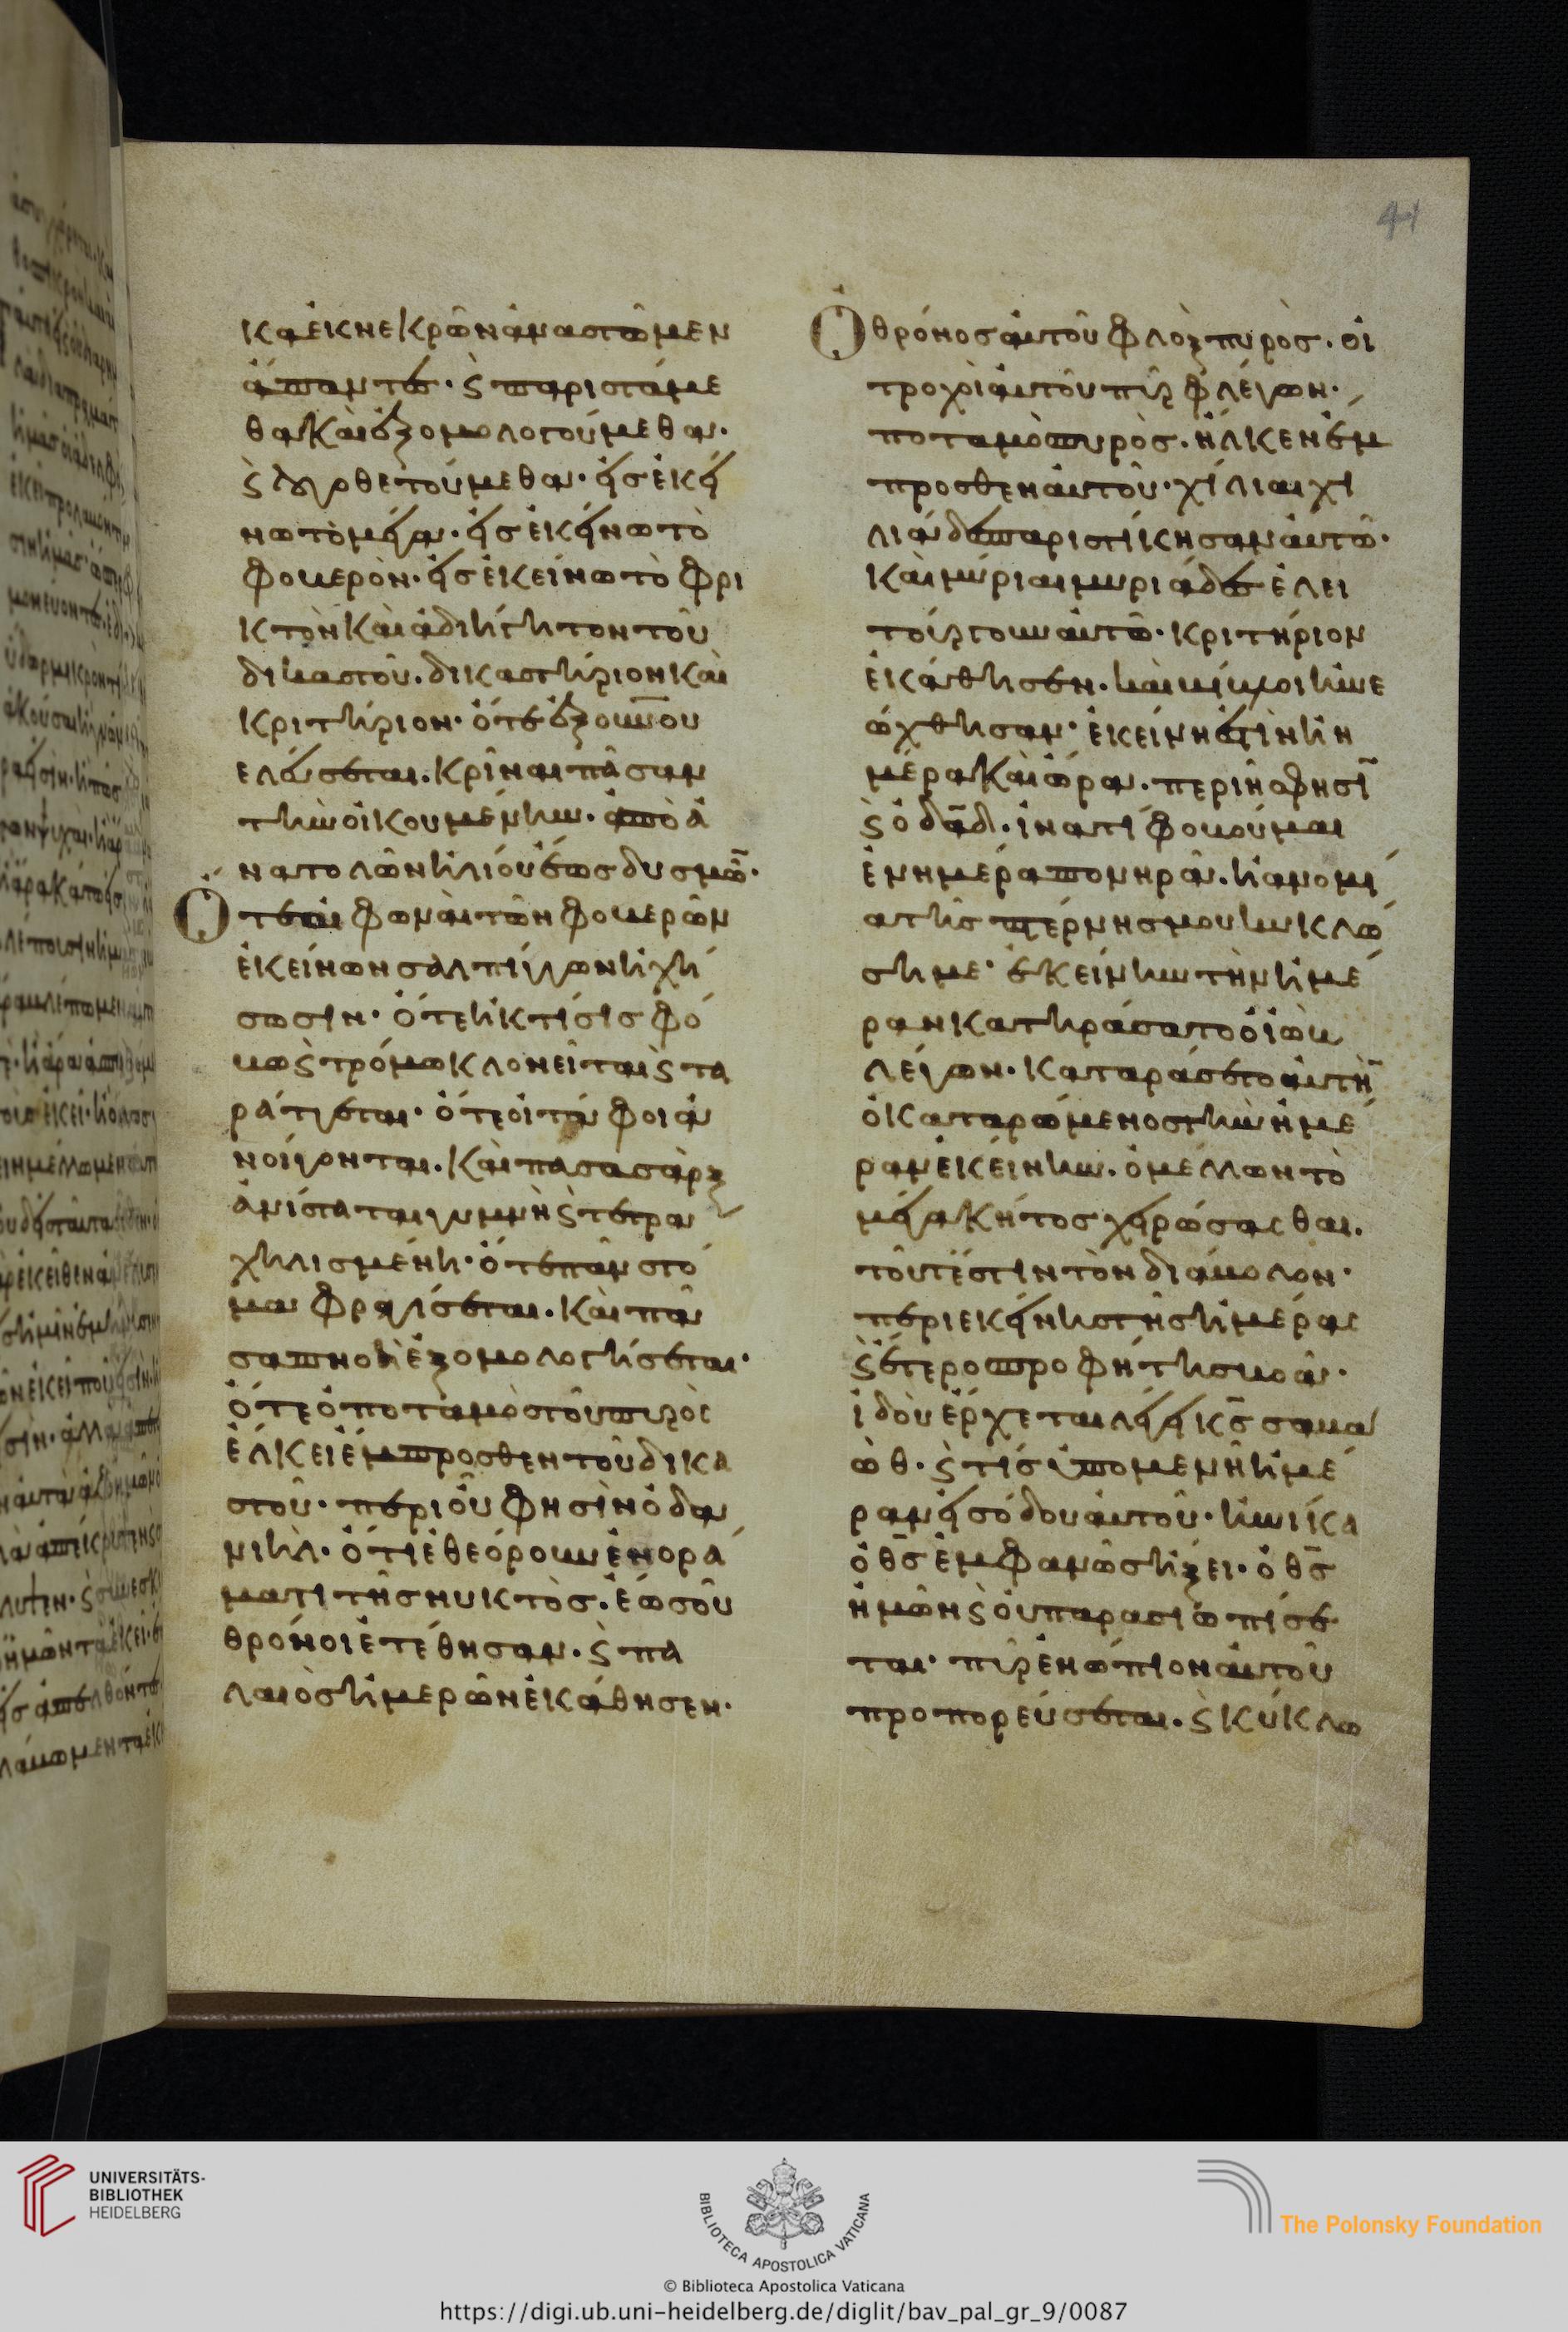 41
κα ἐκ νεκρῶν ἀναστῶμεν
ἅπαντες· ϛ παριστάμε
θα καὶ ἐξομολογούμεθα·
ϛ λογοθετούμεθα· εἰς ἐκεῖ
νω τὸ μέγα· εἰς ἐκείνω τὸ
φοβερὸν· εἰς ἐκείνω τὸ φρι
κτὸν καὶ ἀδιήγητον τοῦ
δικαστοῦ· δικαστήριον καὶ
κριτήριον· ὅτε ἐξ οὐνοῦ
ελεύσεται· κρῖναι πᾶσαν
τὴν οἰκουμένην· ἀπὸ ἀ
νατολῶν ἡλίου ἕως δυσμῶ·
Ὅτε αἱ φωναὶ τῶν φοβερῶν
ἐκείνων σαλπίγγων ἠχή
σωσιν· ὅτε ἡ κτίσις φό
βω ϛ τρόμω κλονεῖται ϛ τα
ράττεται· ὅτε οἱ τάφοι ἀ
νοίγονται· καὶ πασα σὰρξ
ἀνίσταται γυμνὴ ϛ τετρα
χηλισμένη· ὅτε πᾶν στό
μα φραγίσεται· καὶ πᾶ
σα πνοὴ ἐξομολογήσεται·
ὅτε ὁ ποταμὸς τοῦ πυρὸς
ἕλκει ἔμπροσθεν τοῦ δικα
στοῦ· περι οὗ φησὶν ὁ δα
νιηλ· ὅτι ἐθεόρουν ἐν ορά
ματι τῆς νυκτὸς· ἕως οὗ
θρόνοι ἐτέθησαν· ϛ πα
λαιὸς ἡμερῶν ἐκάθησεν·
Ὁ θρόνος αὐτοῦ φλὸξ πυρὸς· οἱ
τροχοὶ αὐτοῦ πῦρ φλέγων·
ποταμὸ πυρὸς· ἧλκεν ἔμ
προσθεν αὐτοῦ· χίλιαι χι
λιάδες παριστίκησαν αὐτῶ·
καὶ μύριαι μυριάδες ἐλει
τούργουν αὐτῶ· κριτήριον
ἐκάθησεν· καὶ βίβλοι ἠνε
ώχθησαν· ἐκείνη ἐστὶν ἡ η
μέρα καὶ ὥρα· περι ἧς φησὶ
ϛ ὁ δᾱδ· ἱνατί φοβούμαι
ἐν ημέρα πονηρᾶ· ἡ ανομί
α τῆς πτέρνης μου κυκλώ
ση με· ἐκείνην τὴν ἡμέ
ραν κατηράσατο ὁ ἰὼβ
λέγων· καταράσετο αὐτὴ
ὁ καταρώμενος τὴν ἡμέ
ραν ἐκείεινην· ὁ μέλλων τὸ
μέγα κῆτος χειρώσασθαι·
τοῦτέστιν τὸν διάβολον·
περι εκείνης τῆς ἡμέρας
ϛ ἕτερο προφήτης βοᾶ·
ἰδοὺ ἔρχεται λέγει κ̅ς̅ σαβα
ὼθ· ϛ τίς ὑπομενῆ ἡμέ
ραν εἰσόδου αὐτοῦ· ἡνίκα
ὁ θ̅ς̅ ἐμφανῶς ἥξει· ὁ θ̅ς̅
ἡμῶν ϛ οὐ παρασιωπίσε
ται· πῦρ ἐνώπιον αὐτοῦ
προπορεύσεται· ϛ κύκλω
UNIVERSITÄTS-
BIBLIOTHEK
HEIDELBERG
BIBLIOTECA APOSTOLICA VATICANA
The Polonsky Foundation
© Biblioteca Apostolica Vaticana
https://digi.ub.uni-heidelberg.de/diglit/bav_pal_gr_9/0087